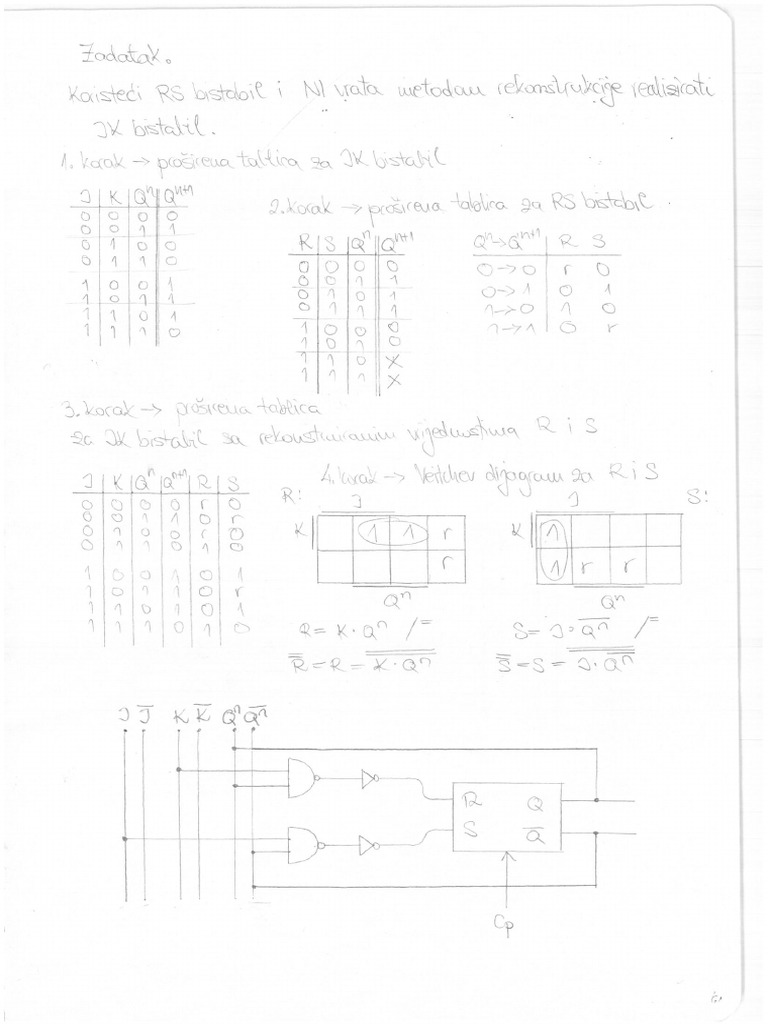 Zadatak.
Koisteći RS bistabil i NI vrata metodom rekonstrukcije realizirati
JK bistabil.
1. korak → proširena tablica za JK bistabil
J K Qⁿ Qⁿ⁺¹
0 0 0 0
0 0 1 1
0 1 0 0
0 1 1 0
1 0 0 1
1 0 1 1
1 1 0 1
1 1 1 0
2. korak → proširena tablica za RS bistabil.
R S Qⁿ Qⁿ⁺¹
0 0 0 0
0 0 1 1
0 1 0 1
0 1 1 1
1 0 0 0
1 0 1 0
1 1 0 X
1 1 1 X
Qⁿ→Qⁿ⁺¹ R S
0→0 r 0
0→1 0 1
1→0 1 0
1→1 0 r
3. korak → proširena tablica
za JK bistabil sa rekonstruiranim vrijednostima R i S
J K Qⁿ Qⁿ⁺¹ R S
0 0 0 0 r 0
0 0 1 1 0 r
0 1 0 0 r 0
0 1 1 0 1 0
1 0 0 1 0 1
1 0 1 1 0 r
1 1 0 1 0 1
1 1 1 0 1 0
4. korak → Veitchev dijagram za R i S
R: J
K 1 1 r
r
Qⁿ
R = K·Qⁿ /=
R̿ = R = K·Qⁿ
J S:
K 1
1 r r
Qⁿ
S = J·Q̅ⁿ /=
S̿ = S = J·Q̅ⁿ
J J̅ K K̅ Qⁿ Q̅ⁿ
R Q
S Q̅
Cp